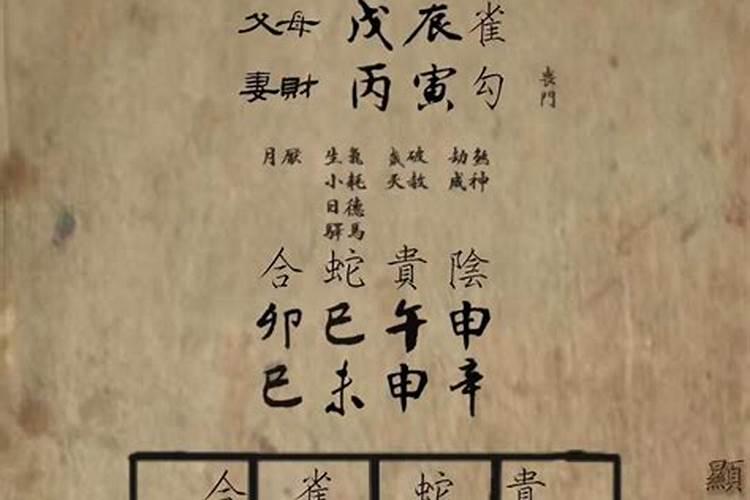 父母 戊辰雀
妻財 丙寅勾 喪門
月厭 生氣 歲破 劫煞
小耗 天赦 成神
日德
驛馬
合 蛇 貴 陰
卯 巳 午 申
巳 未 申 辛
合 雀 蛇 貴
顯